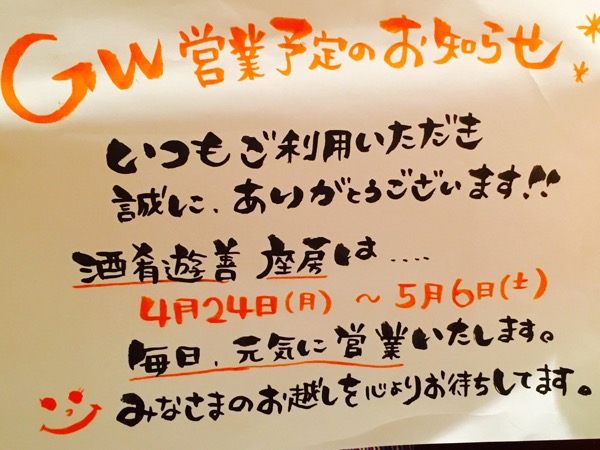 GW営業予定のお知らせ
いつもご利用いただき
誠に、ありがとうございます!!
酒肴遊善 座房は....
4月24日(月) ~ 5月6日(土)
毎日、元気に営業いたします。
みなさまのお越しを心よりお待ちしてます。